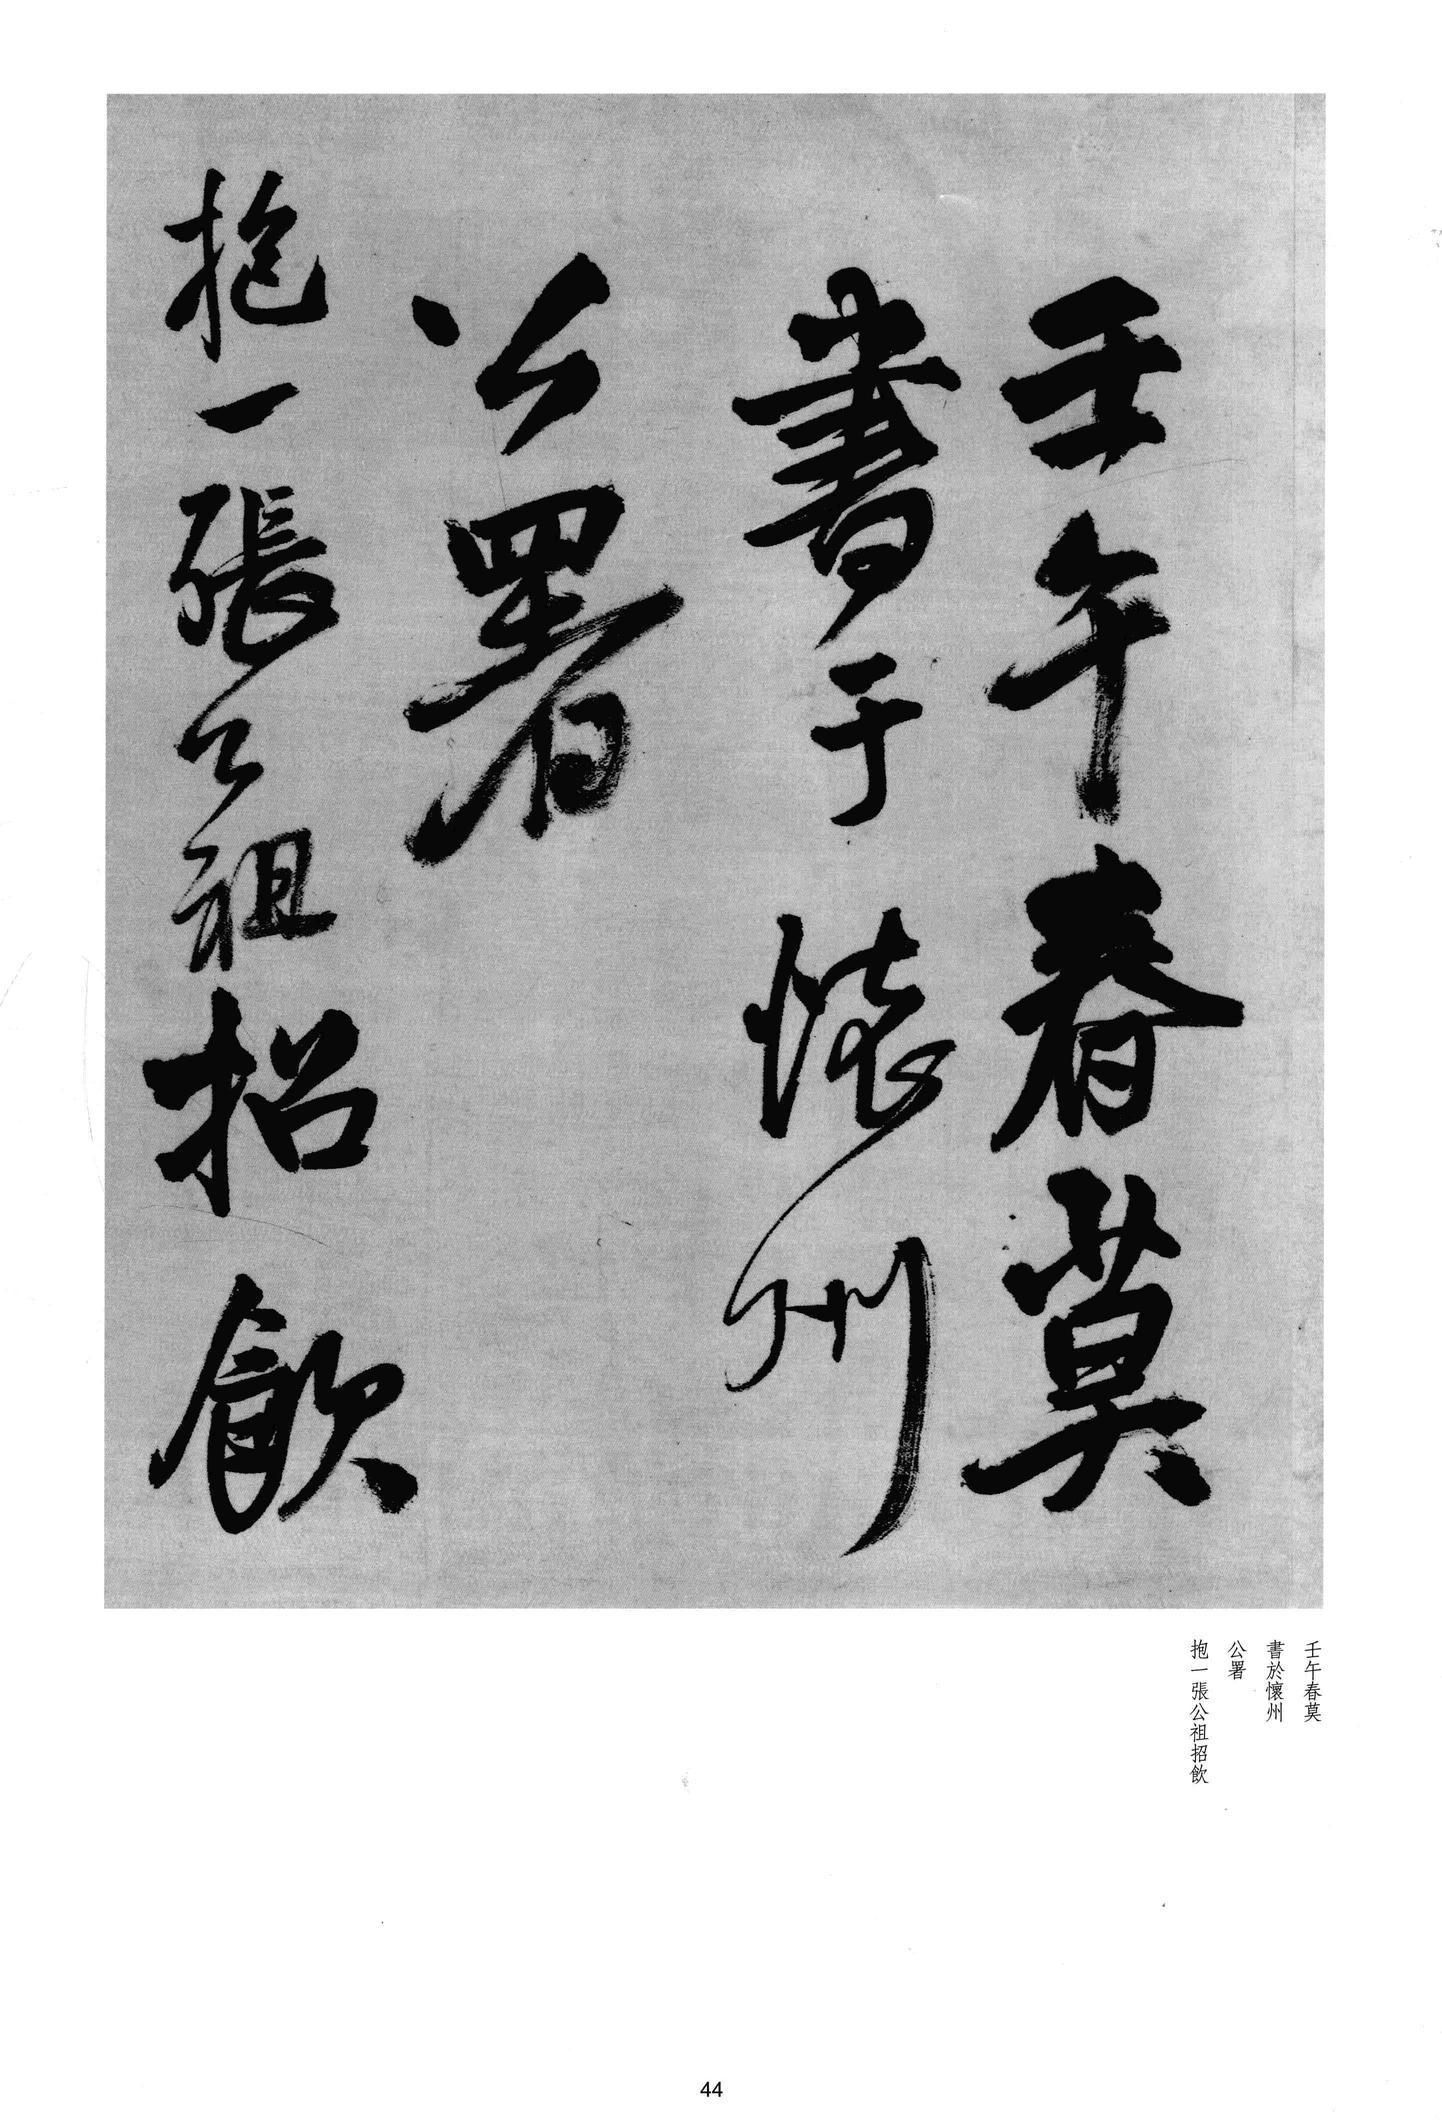 壬午春莫
書于懷州
公署
抱一張公祖招飲
壬午春莫
書於懷州
公署
抱一張公祖招飲
44